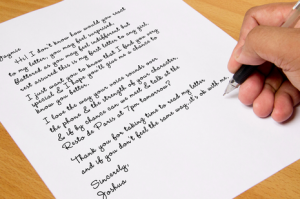 Hi! I don't how would you react
to my letter, you may feel surprised,
flattered or you may feel indifferent but
rest assured this is my first letter to any girl.
I just want you to know that I find you very
special & I hope you'll give me a chance to
know you better.
I love the way your voice sounds over
the phone & the strength of your character,
& if by chance can we meet & talk at the
Resto de Paris at 7pm tomorrow?
Thank you for taking time to read my letter
and if you don't feel the same way, it's ok with me.
Sincerely,
Joshua